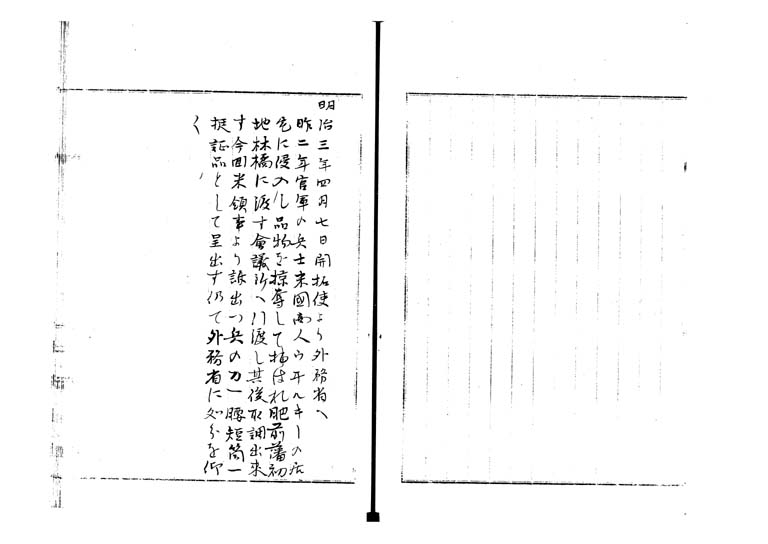 明治三年四月七日開拓使より外務省へ
昨二年官軍の兵士米國商人ウヰルキーの店
宅に侵入し品物を掠奪して捕はれ肥前藩初
地林橋に渡す會議所へ引渡し其後取調出来
す今回米領事より訴出つ兵の刀一腰短筒一
挺証品として呈出す仍て外務省に処分を仰
く